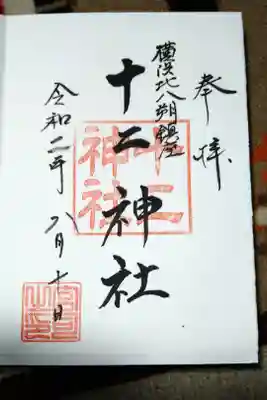 奉拝
横浜北八朔鎮座
十二神社
十二神社
令和二年 八月十日